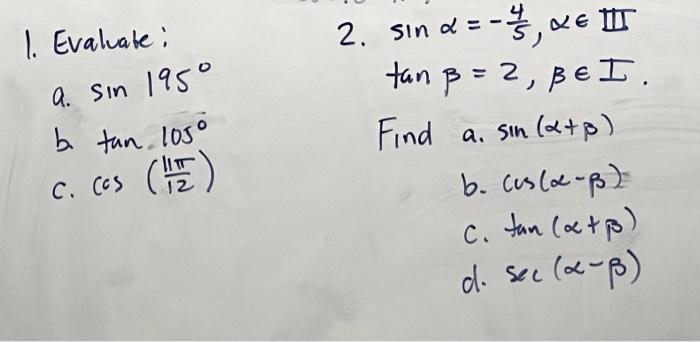 1. Evaluate:
a. sin 195°
b. tan 105°
c. cos (11π/12)
2. sin α = -4/5, α ∈ III
tan β = 2, β ∈ I.
Find a. sin (α+β)
b. cos(α-β)
c. tan (α+β)
d. sec (α-β)